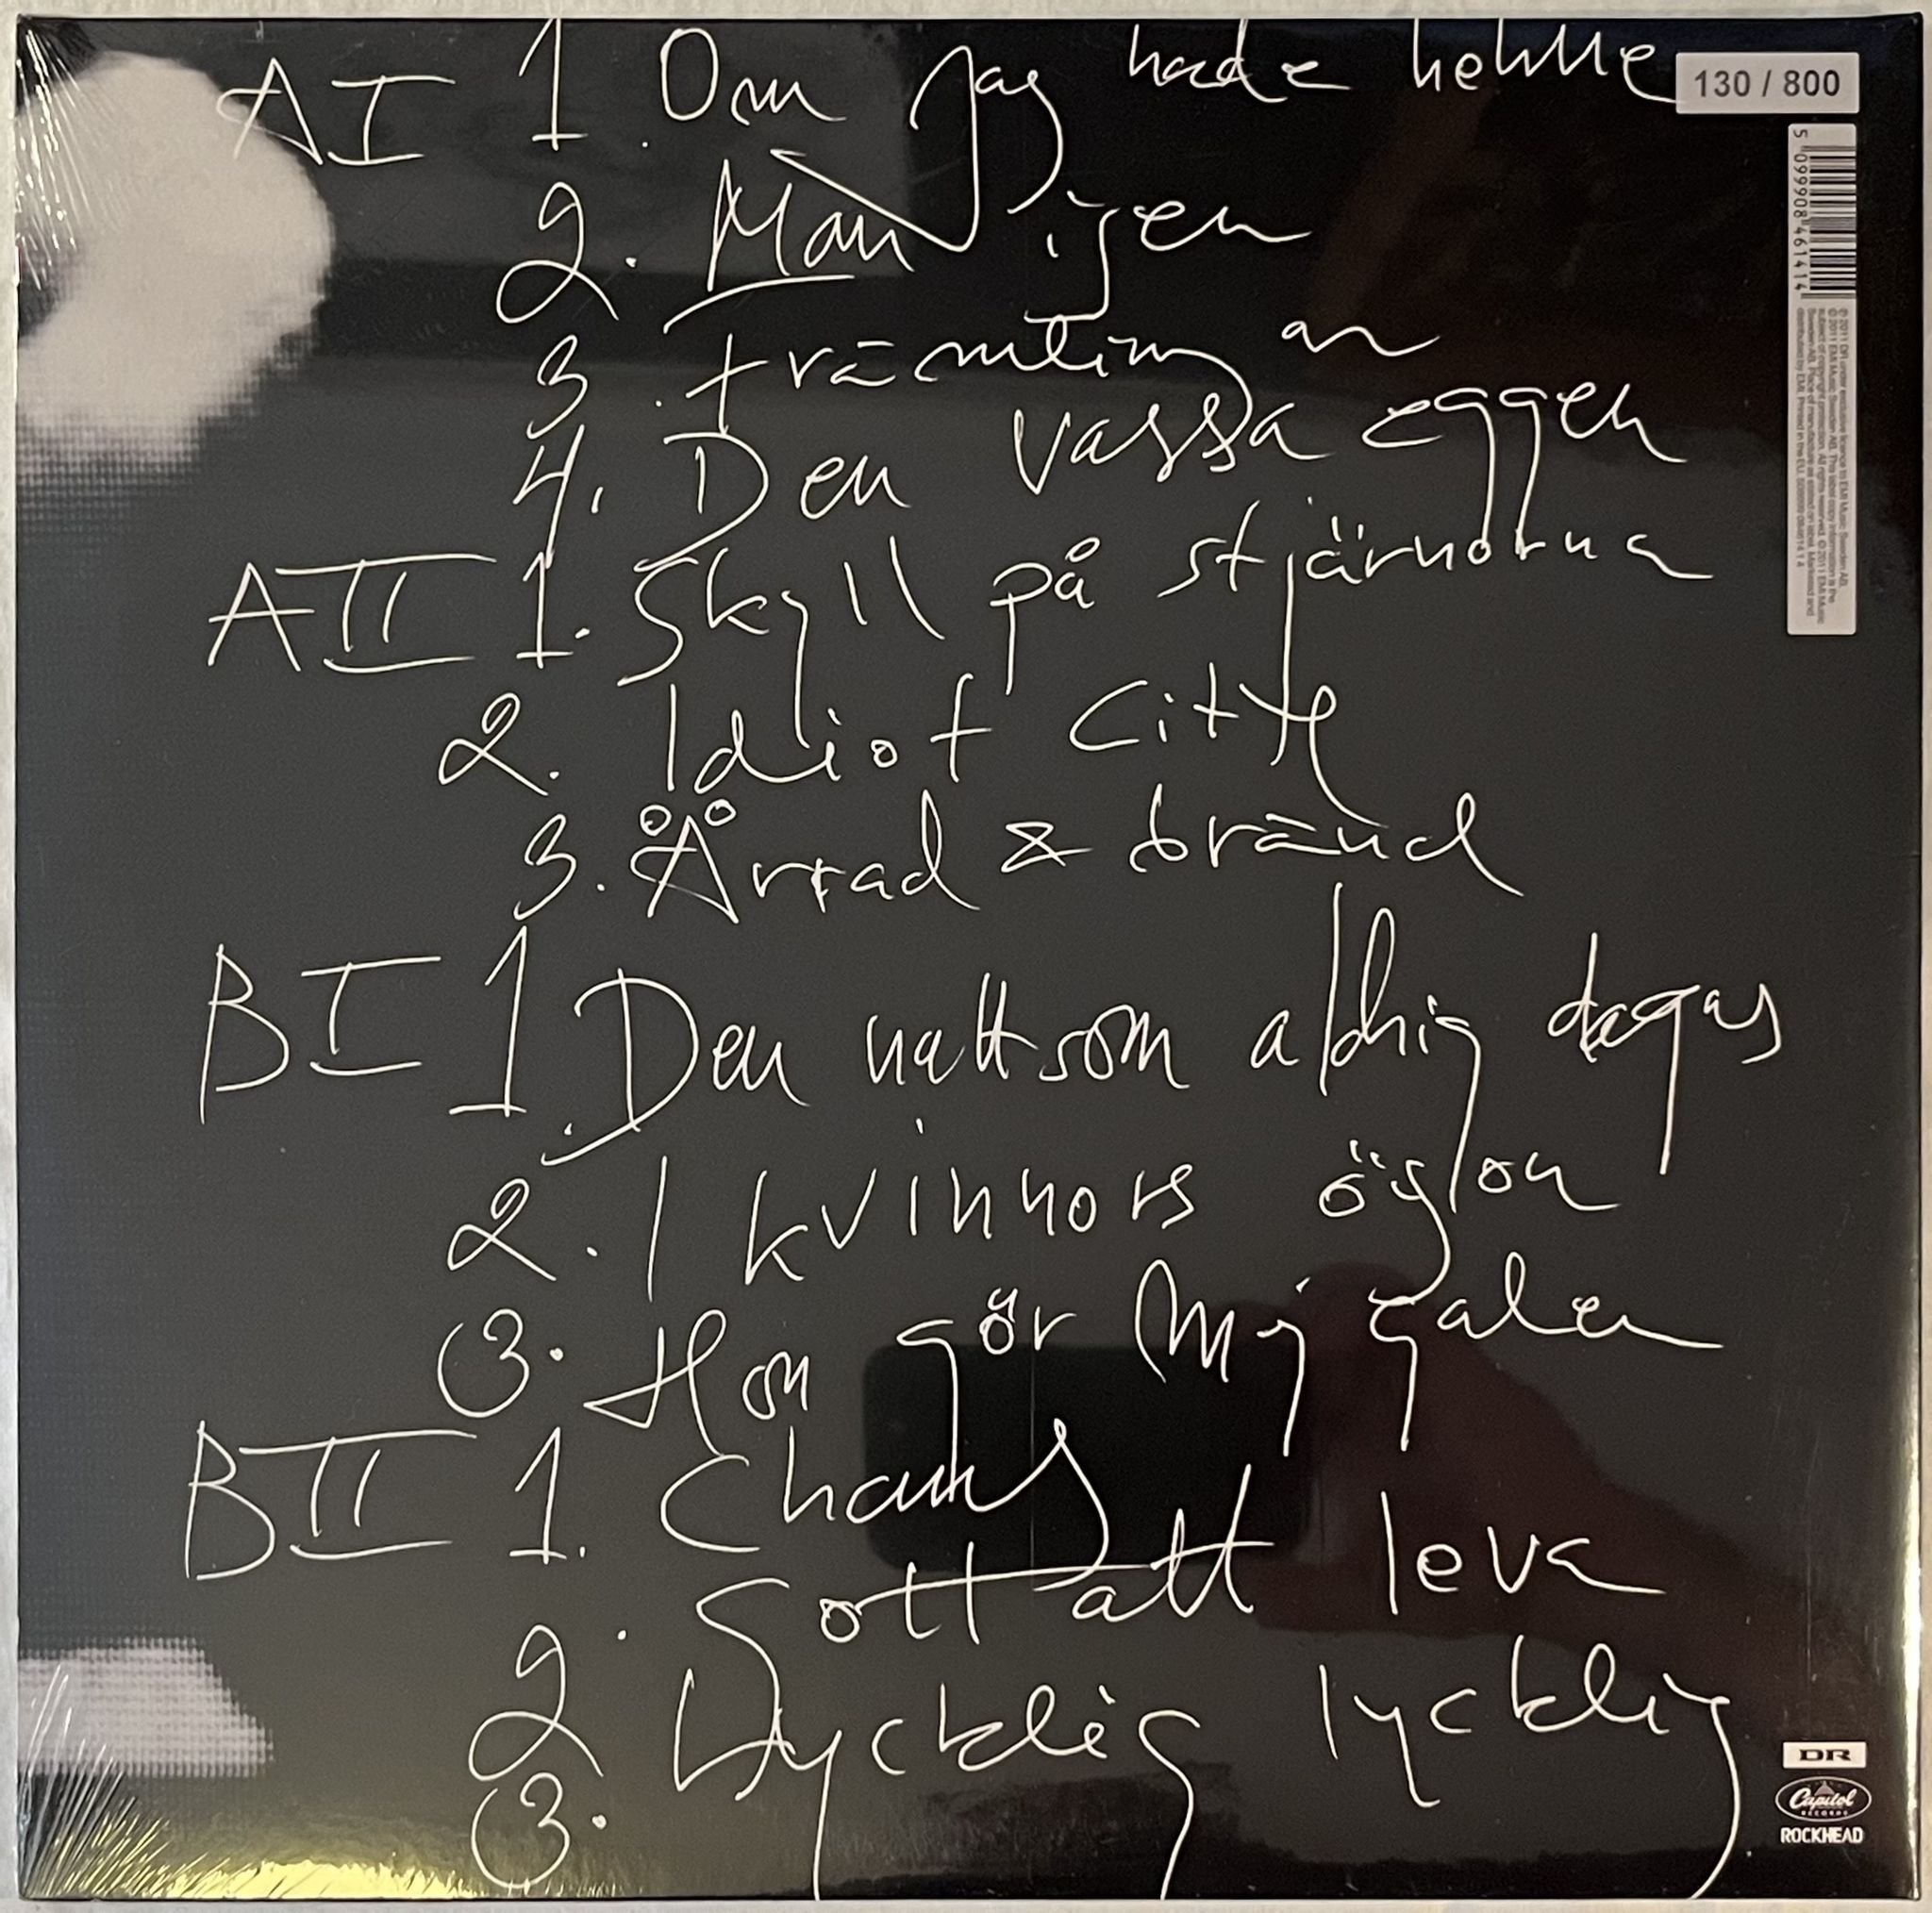 AI 1. Om jag hade hehlle
130 / 800
2. Man igen
3. främling
4. Den vassa eggen
AII 1. Skyll på stjärnorna
2. Idiot city
3. Ärrad & bränd
BI 1. Den natt som aldrig dagas
2. I kvinnors ögon
3. Hon gör mig galen
BII 1. Chans
2. Sott att leva
3. Lycklig lycklig
5 099908 461414
DR
Capitol
RECORDS
ROCKHEAD